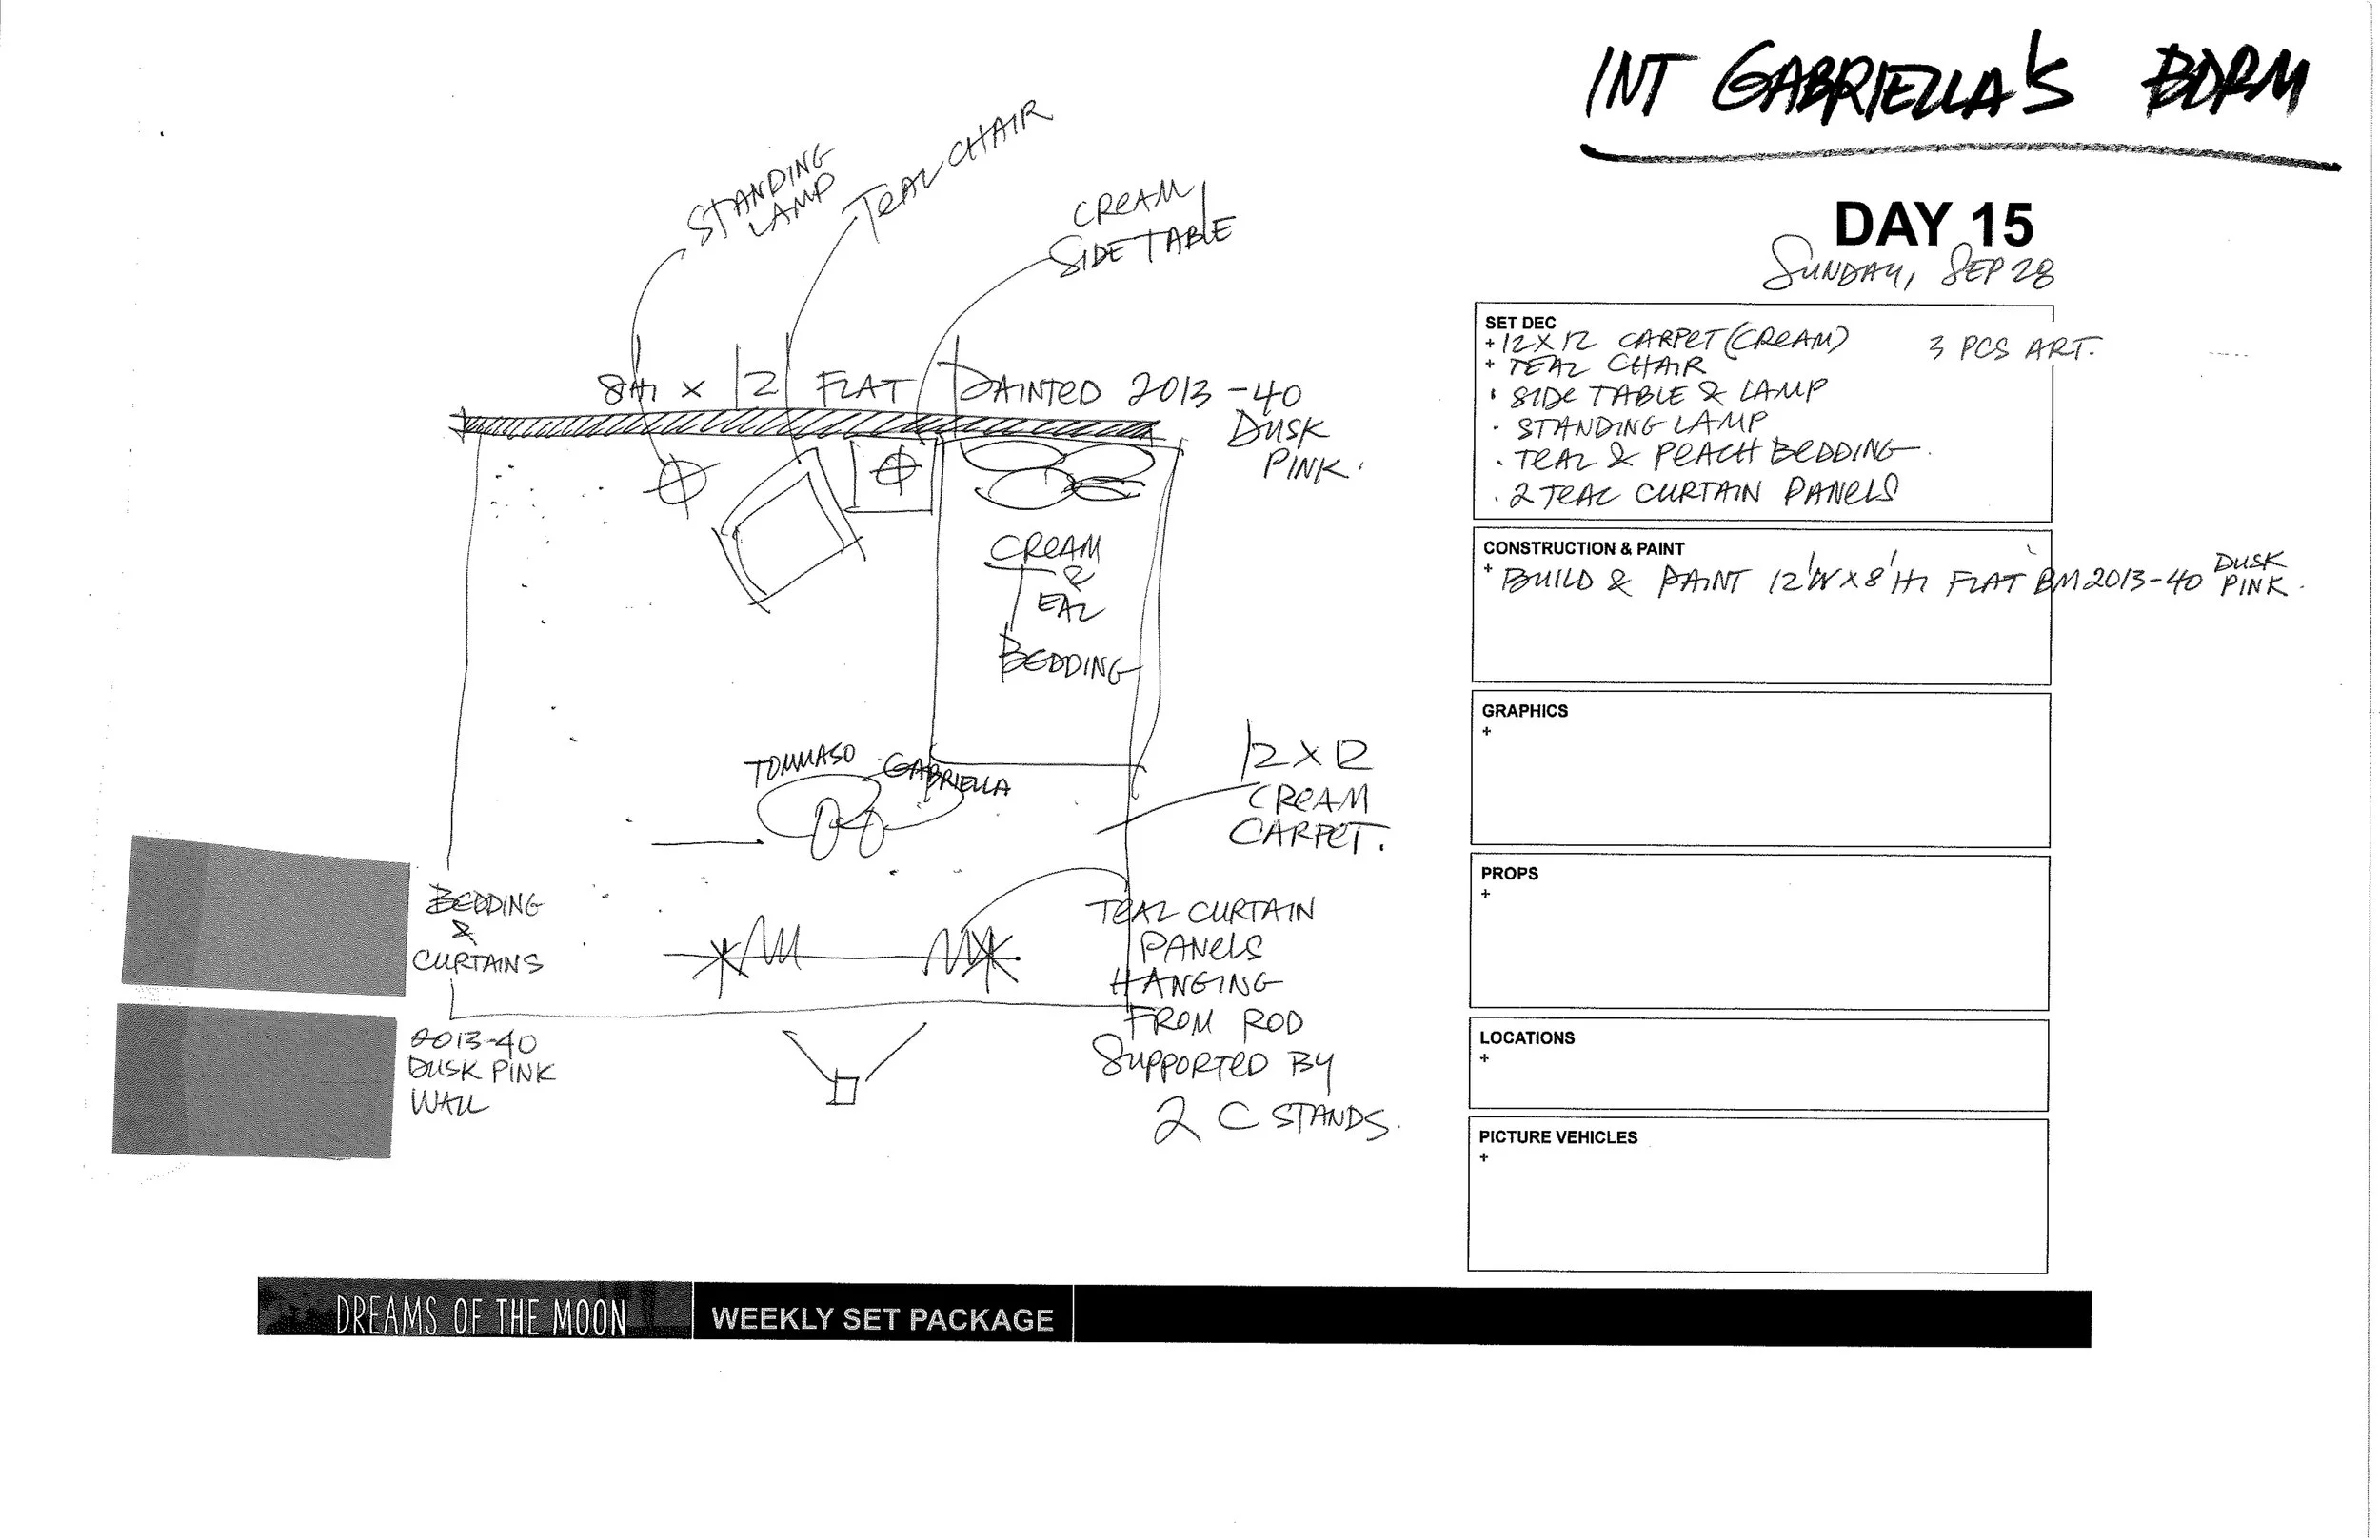 INT GABRIELLA'S BDRM
DAY 15
SUNDAY, SEP 28
STANDING
LAMP
TEAL CHAIR
CREAM
SIDE TABLE
8'HI x 12' FLAT PAINTED 2013-40
DUSK
PINK.
CREAM
&
TEAL
BEDDING
TOMMASO GABRIELLA
12 X 12
CREAM
CARPET.
TEAL CURTAIN
PANELS
HANGING
FROM ROD
SUPPORTED BY
2 C STANDS.
BEDDING
&
CURTAINS
2013-40
DUSK PINK
WALL
SET DEC
+ 12 X 12 CARPET (CREAM) 3 PCS ART.
+ TEAL CHAIR
· SIDE TABLE & LAMP
· STANDING LAMP
· TEAL & PEACH BEDDING
· 2 TEAL CURTAIN PANELS
CONSTRUCTION & PAINT
+ BUILD & PAINT 12'W X 8'HI FLAT BM 2013-40 DUSK
PINK.
GRAPHICS
+
PROPS
+
LOCATIONS
+
PICTURE VEHICLES
+
DREAMS OF THE MOON WEEKLY SET PACKAGE